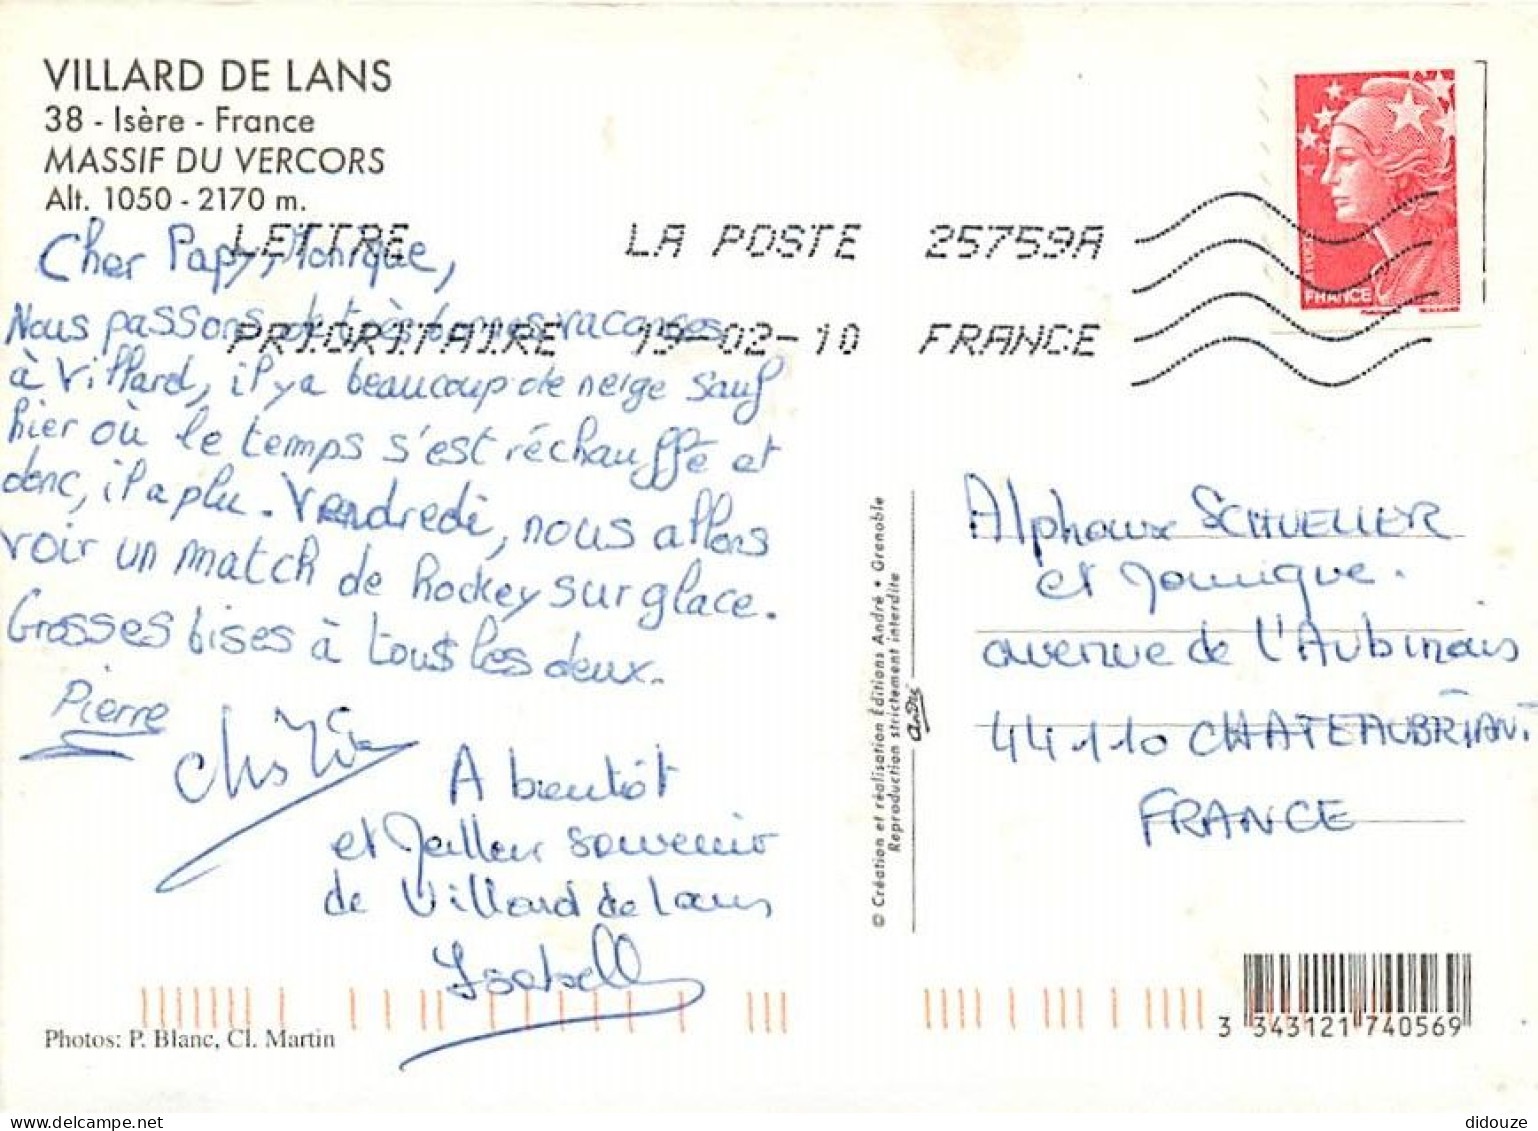 VILLARD DE LANS
38 - Isère - France
MASSIF DU VERCORS
Alt. 1050 - 2170 m.
LETTRE LA POSTE 25759A
PRIORITAIRE 19-02-10 FRANCE
FRANCE
Cher Papy, Monique,
Nous passons de très bonnes vacances
à Villard, il y a beaucoup de neige sauf
hier où le temps s'est réchauffé et
donc, il a plu. Vendredi, nous allons
voir un match de hockey sur glace.
Grosses bises à tous les deux.
Pierre
A bientôt
et meilleur souvenir
de Villard de Lans
Isabelle
Photos: P. Blanc, Cl. Martin
© Création et réalisation Éditions André • Grenoble
Reproduction strictement interdite
André
SCHUELLER
et Monique.
avenue de l'Aubinais
44110 CHATEAUBRIANT
FRANCE
3 343121 740569
delcampe.net
didouze